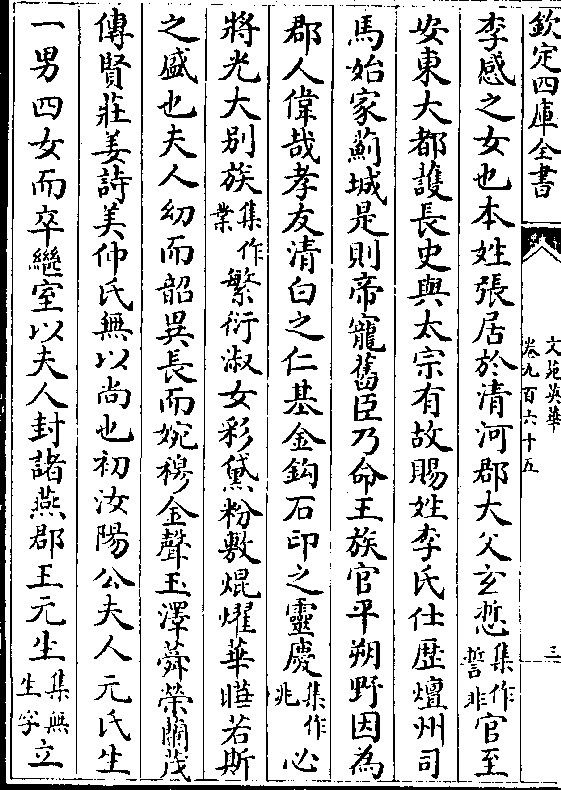 欽定四庫全書
文苑英華
卷九百六十五
三
李感之女也本姓張居於清河郡大父玄悊集作誓非官至
安東大都護長史與太宗有故賜姓李氏仕歷壇州司
馬始家薊城是則帝寵舊臣乃命王族官平朔野因為
郡人偉哉孝友清白之仁基金鈎石印之靈慶集作兆必
將光大別族集作業繁衍淑女彩黛粉敷焜燿華曄若斯
之盛也夫人幼而韶異長而婉穆金聲玉澤蕣榮蘭茂
傳賢莊姜詩美仲氏無以尚也初汝陽公夫人元氏生
一男四女而卒繼室以夫人封諸燕郡王元生集無生字立